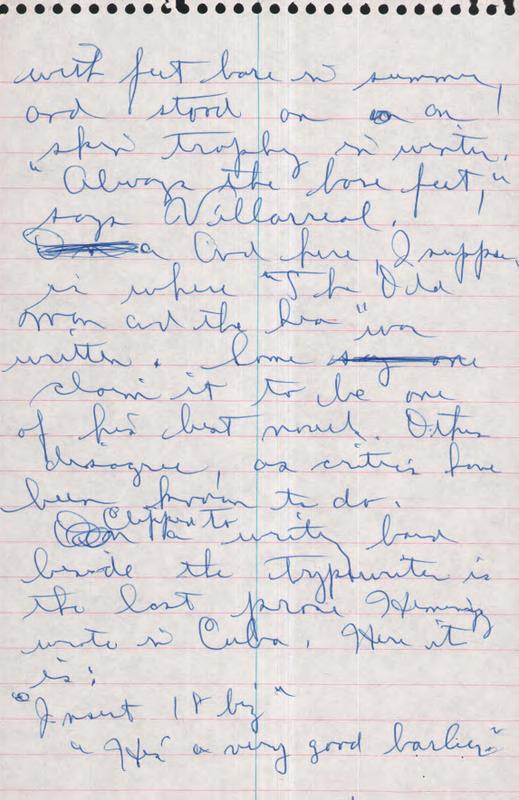 with feet bare in summer,
and stood on an
skin trophy in winter.
"Always the bare feet,"
says Villarreal.
And here, I suppose,
is where "The Old
Man and the Sea" was
written. Some
claim it to be one
of his best novels. Others
disagree, as critics have
been known to do.
Clipped to
the writing board
beside the typewriter is
the last prose Heming
wrote in Cuba. Here it
is:
"Insert 1 A
"He's a very good